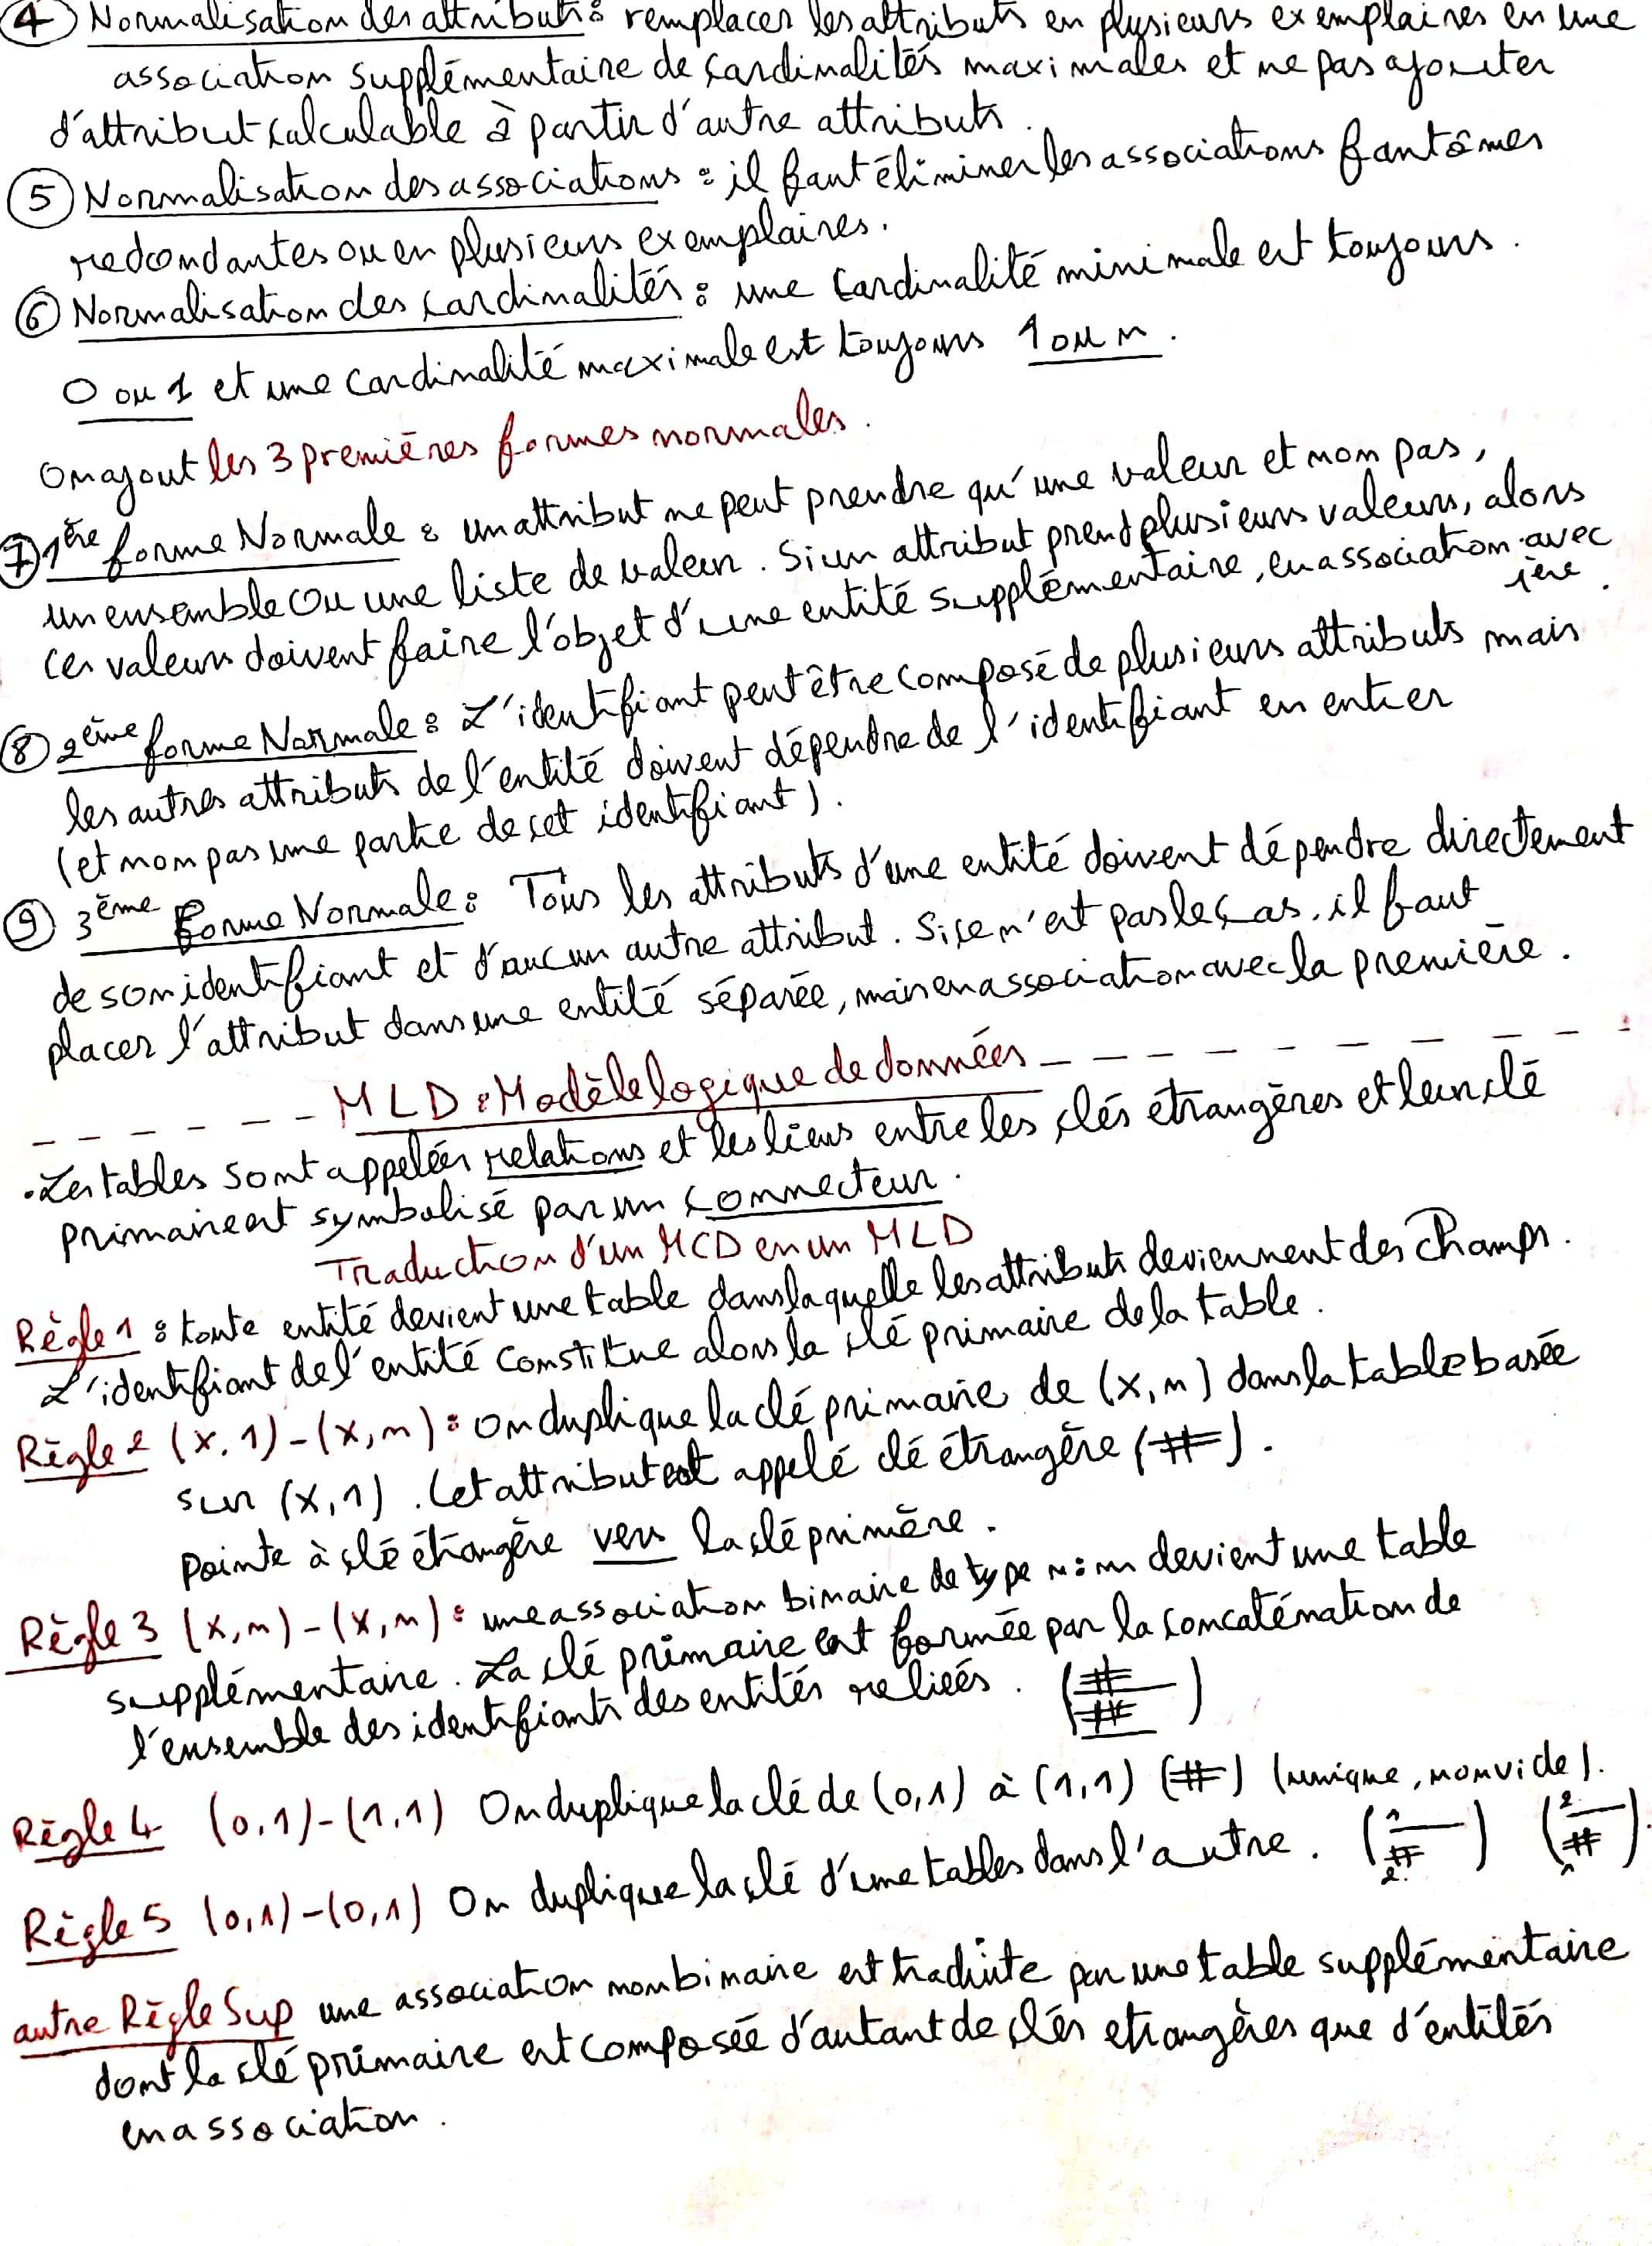 ④ Normalisation des attributs : remplacer les attributs en plusieurs exemplaires en une
association supplémentaire de cardinalités maximales et ne pas ajouter
d'attribut calculable à partir d'autre attributs.
⑤ Normalisation des associations : il faut éliminer les associations fantômes
redondantes ou en plusieurs exemplaires.
⑥ Normalisation des cardinalités : une cardinalité minimale est toujours.
0 ou 1 et une cardinalité maximale est toujours 1 ou n.
On ajout les 3 premières formes normales.
⑦ 1ère forme Normale : un attribut ne peut prendre qu'une valeur et non pas,
un ensemble ou une liste de valeur. Si un attribut prend plusieurs valeurs, alors
ces valeurs doivent faire l'objet d'une entité supplémentaire, en association avec
1ère.
⑧ 2ème forme Normale : L'identifiant peut être composé de plusieurs attributs mais
les autres attributs de l'entité doivent dépendre de l'identifiant en entier
(et non pas une partie de cet identifiant).
⑨ 3ème Forme Normale : Tous les attributs d'une entité doivent dépendre directement
de son identifiant et d'aucun autre attribut. Si ce n'est pas le cas, il faut
placer l'attribut dans une entité séparée, mais en association avec la première.
MLD : Modèle logique de données
. Les tables sont appelées relations et les liens entre les clés étrangères et leur clé
primaire est symbolisé par un connecteur.
Traduction d'un MCD en un MLD
Règle 1 : toute entité devient une table dans laquelle les attributs deviennent des champs.
L'identifiant de l'entité constitue alors la clé primaire de la table.
Règle 2 (x,1)-(x,n) : On duplique la clé primaire de (x,n) dans la table basée
sur (x,1). Cet attribut est appelé clé étrangère (#).
Pointe à clé étrangère vers la clé primère.
Règle 3 (x,n)-(x,n) : une association binaire de type n:m devient une table
supplémentaire. La clé primaire est formée par la concaténation de
l'ensemble des identifiants des entités reliées. (# #)
Règle 4 (0,1)-(1,1) On duplique la clé de (0,1) à (1,1) (#) (unique, non vide).
Règle 5 (0,1)-(0,1) On duplique la clé d'une tables dans l'autre. (1 # 2) (2 # 1).
autre Règle Sup une association non binaire est traduite par une table supplémentaire
dont la clé primaire est composée d'autant de clés etrangères que d'entités
en association.